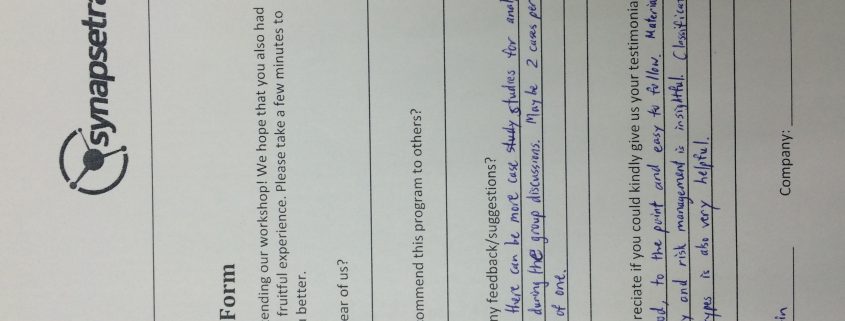 synapsetra
Form
ending our workshop! We hope that you also had
fruitful experience. Please take a few minutes to
better.
ear of us?
ommend this program to others?
ny feedback/suggestions?
there can be more case study studies for anal
during the group discussions. Maybe 2 cases per
of one.
reciate if you could kindly give us your testimonia
od, to the point and easy to follow. Materia
y and risk management is insightful. Classificat
ypes is also very helpful.
in Company: